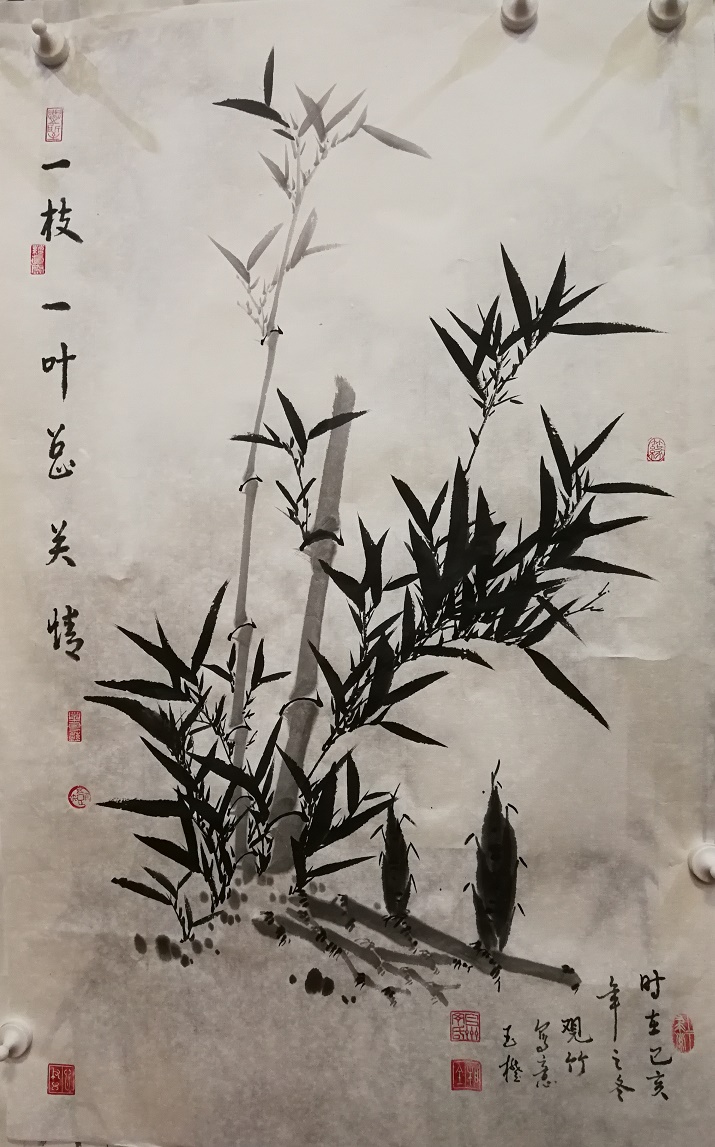 一枝一叶总关情
时在己亥
年之冬
观竹
写意